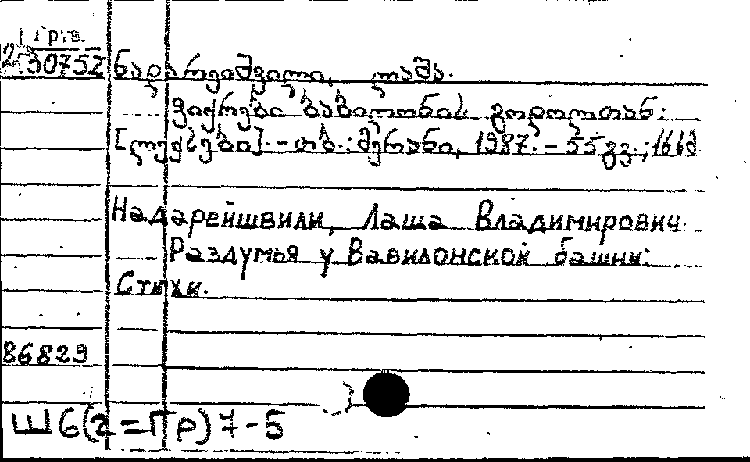 Груз.
2.30752
ნადარეიშვილი, ლაშა.
ფიქრები ბაბილონის გოდოლთან:
[ლექსები]. - თბ.: მერანი, 1987. - 55 გვ.; 16სმ
Надарейшвили, Лаша Владимирович.
Раздумья у Вавилонской башни:
Стихи.
86829
Ш6(2=Гр)7-5